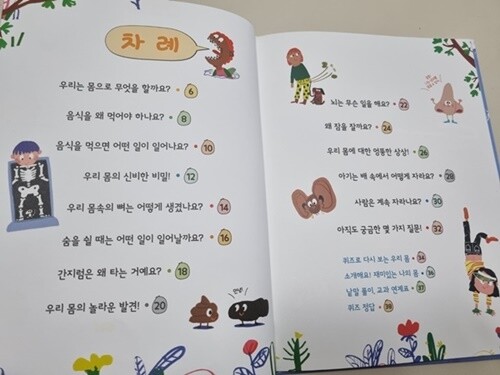 차례
우리는 몸으로 무엇을 할까요? • 6
음식을 왜 먹어야 하나요? • 8
음식을 먹으면 어떤 일이 일어나요? • 10
우리 몸의 신비한 비밀! • 12
우리 몸속의 뼈는 어떻게 생겼나요? • 14
숨을 쉴 때는 어떤 일이 일어날까요? • 16
간지럼은 왜 타는 거예요? • 18
우리 몸의 놀라운 발견! • 20
안녕!
뇌는 무슨 일을 해요? • 22
왜 잠을 잘까요? • 24
우리 몸에 대한 엉뚱한 상상! • 26
아기는 배 속에서 어떻게 자라요? • 28
사람은 계속 자라나요? • 30
아직도 궁금한 몇 가지 질문! • 32
퀴즈로 다시 보는 우리 몸 • 34
소개해요! 재미있는 나의 몸 • 36
낱말 풀이, 교과 연계표 • 37
퀴즈 정답 • 38